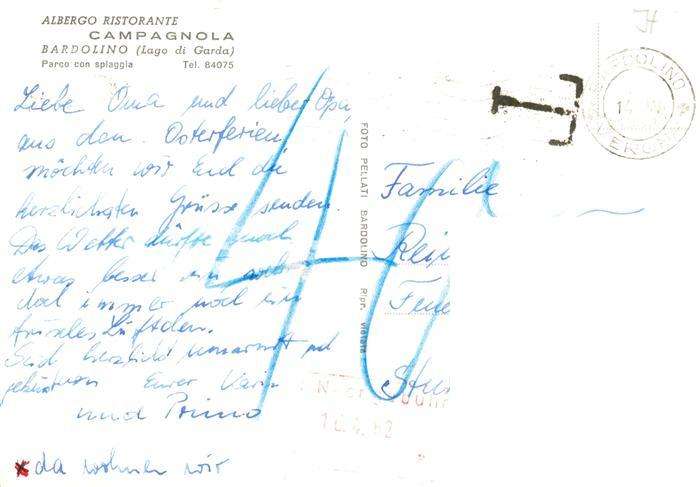 ALBERGO RISTORANTE
CAMPAGNOLA
BARDOLINO (Lago di Garda)
Parco con spiaggia Tel. 84075
Liebe Oma und lieber Opa,
aus den Osterferien
möchten wir Euch die
herzlichsten Grüsse senden.
Das Wetter dürfte noch
etwas besser sein
doch immer noch ein
frisches Lüftchen.
Seid herzlich umarmt und
Eurer
und Primo
x da wohnen wir
FOTO PELLATI BARDOLINO Ripr. vietata
T
BARDOLINO
VERONA
Familie
40
Nachgebühr